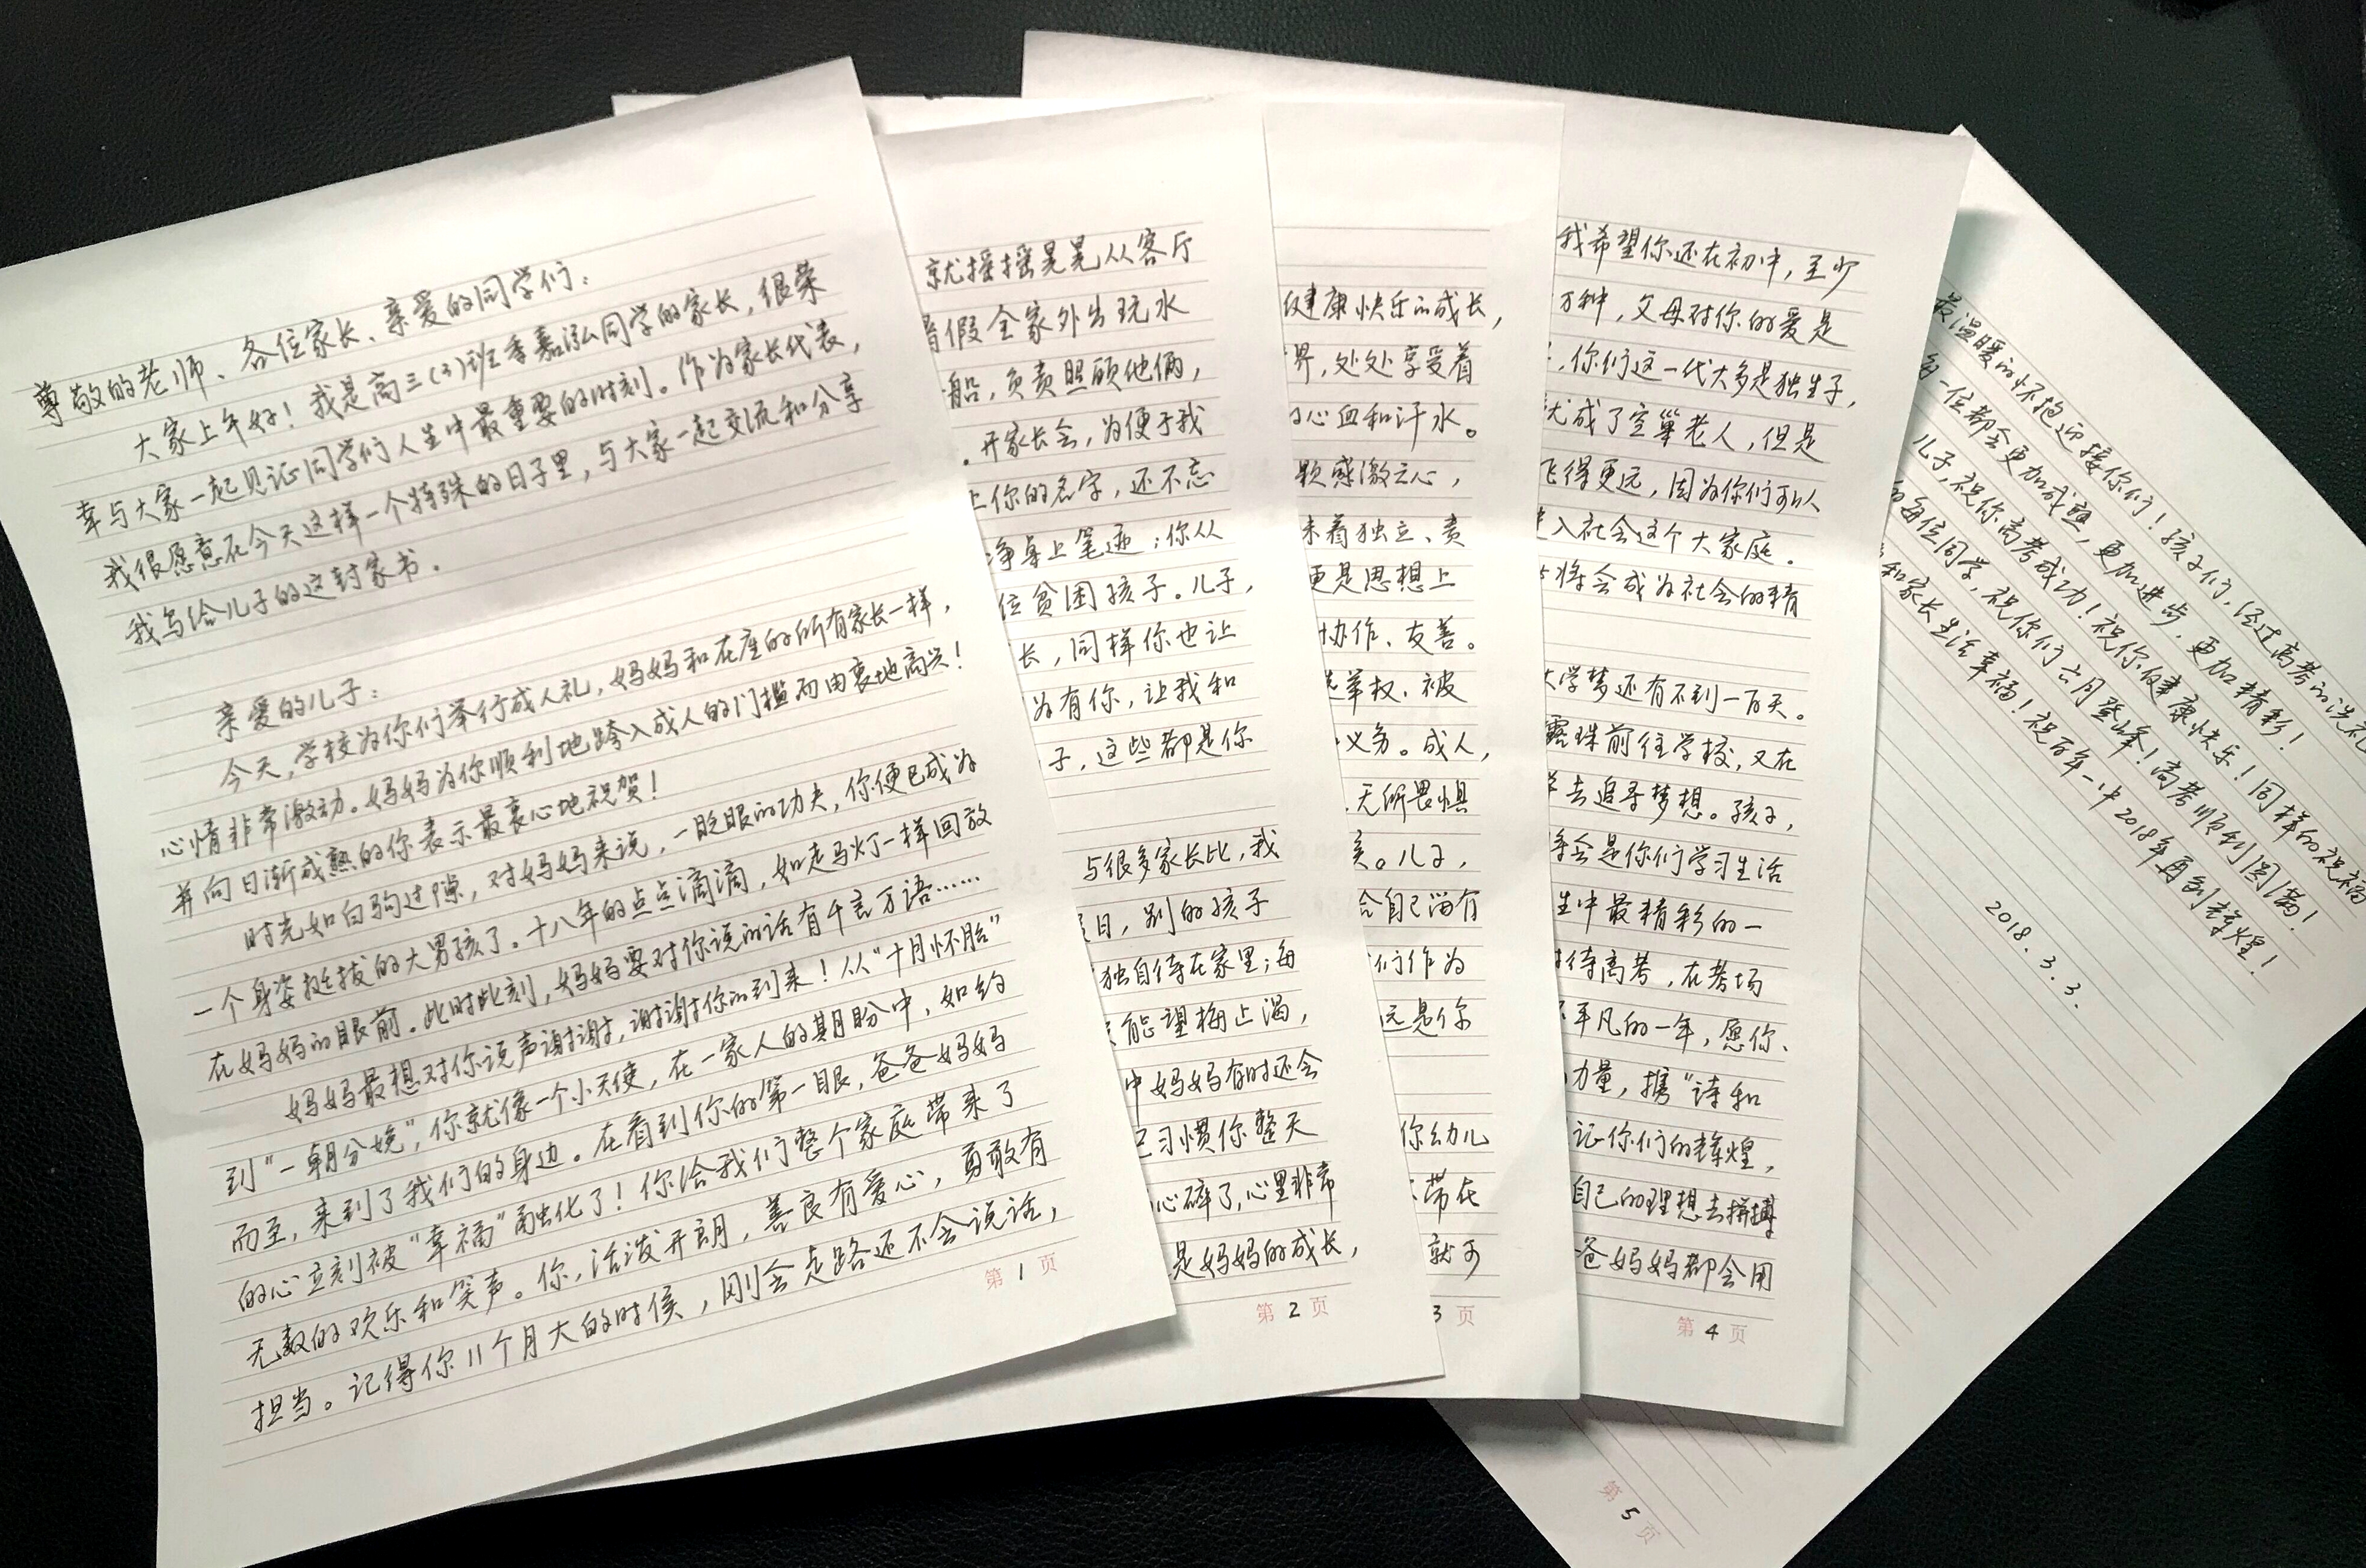 尊敬的老师、各位家长、亲爱的同学们：
大家上午好！我是高三(3)班季嘉泓同学的家长，很荣
幸与大家一起见证同学们人生中最重要的时刻。作为家长代表，
我很愿意在今天这样一个特殊的日子里，与大家一起交流和分享
我写给儿子的这封家书。
亲爱的儿子：
今天，学校为你们举行成人礼，妈妈和在座的所有家长一样，
心情非常激动。妈妈为你顺利地跨入成人的门槛而由衷地高兴！
并向日渐成熟的你表示最衷心地祝贺！
时光如白驹过隙，对妈妈来说，一眨眼的功夫，你便已成为
一个身姿挺拔的大男孩了。十八年的点点滴滴，如走马灯一样回放
在妈妈的眼前。此时此刻，妈妈要对你说的话有千言万语……
妈妈最想对你说声谢谢，谢谢你的到来！从“十月怀胎”
到“一朝分娩”，你就像一个小天使，在一家人的期盼中，如约
而至，来到了我们的身边。在看到你的第一眼，爸爸妈妈
的心立刻被“幸福”融化了！你给我们整个家庭带来了
无数的欢乐和笑声。你，活泼开朗，善良有爱心，勇敢有
担当。记得你11个月大的时候，刚会走路还不会说话，
第1页
就摇摇晃晃从客厅
假全家外出玩水
船，负责照顾他俩，
。开家长会，为便于我
上你的名字，还不忘
净桌上笔迹；你从
位贫困孩子。儿子，
长，同样你也让
为有你，让我和
子，这些都是你
与很多家长比，我
日，别的孩子
独自待在家里；每
能望梅止渴，
中妈妈有时还会
已习惯你整天
心碎了，心里非常
是妈妈的成长，
第2页
健康快乐的成长，
界，处处享受着
心血和汗水。
感激之心，
味着独立、责
更是思想上
协作、友善。
选举权、被
义务。成人，
无所畏惧
。儿子，
给自己留有
们作为
远是你
你幼儿
带在
就可
3页
我希望你还在初中，至少
万种，父母对你的爱是
，你们这一代大多是独生子，
成了空巢老人，但是
飞得更远，因为你们可以
入社会这个大家庭。
将会成为社会的精
大学梦还有不到一百天。
露珠前往学校，又在
去追寻梦想。孩子，
会是你们学习生活
生中最精彩的一
对待高考，在考场
平凡的一年，愿你、
力量，携“诗和
记你们的辉煌，
自己的理想去拼搏
爸妈妈都会用
第4页
最温暖的怀抱迎接你们！孩子们，经过高考的洗礼
每一位都会更加成熟，更加进步，更加精彩！
儿子，祝你高考成功！祝你健康快乐！同样的祝福
每位同学，祝你们六月登峰！高考顺利圆满！
和家长生活幸福！祝百年一中2018年再创辉煌！
2018.3.3.
第5页